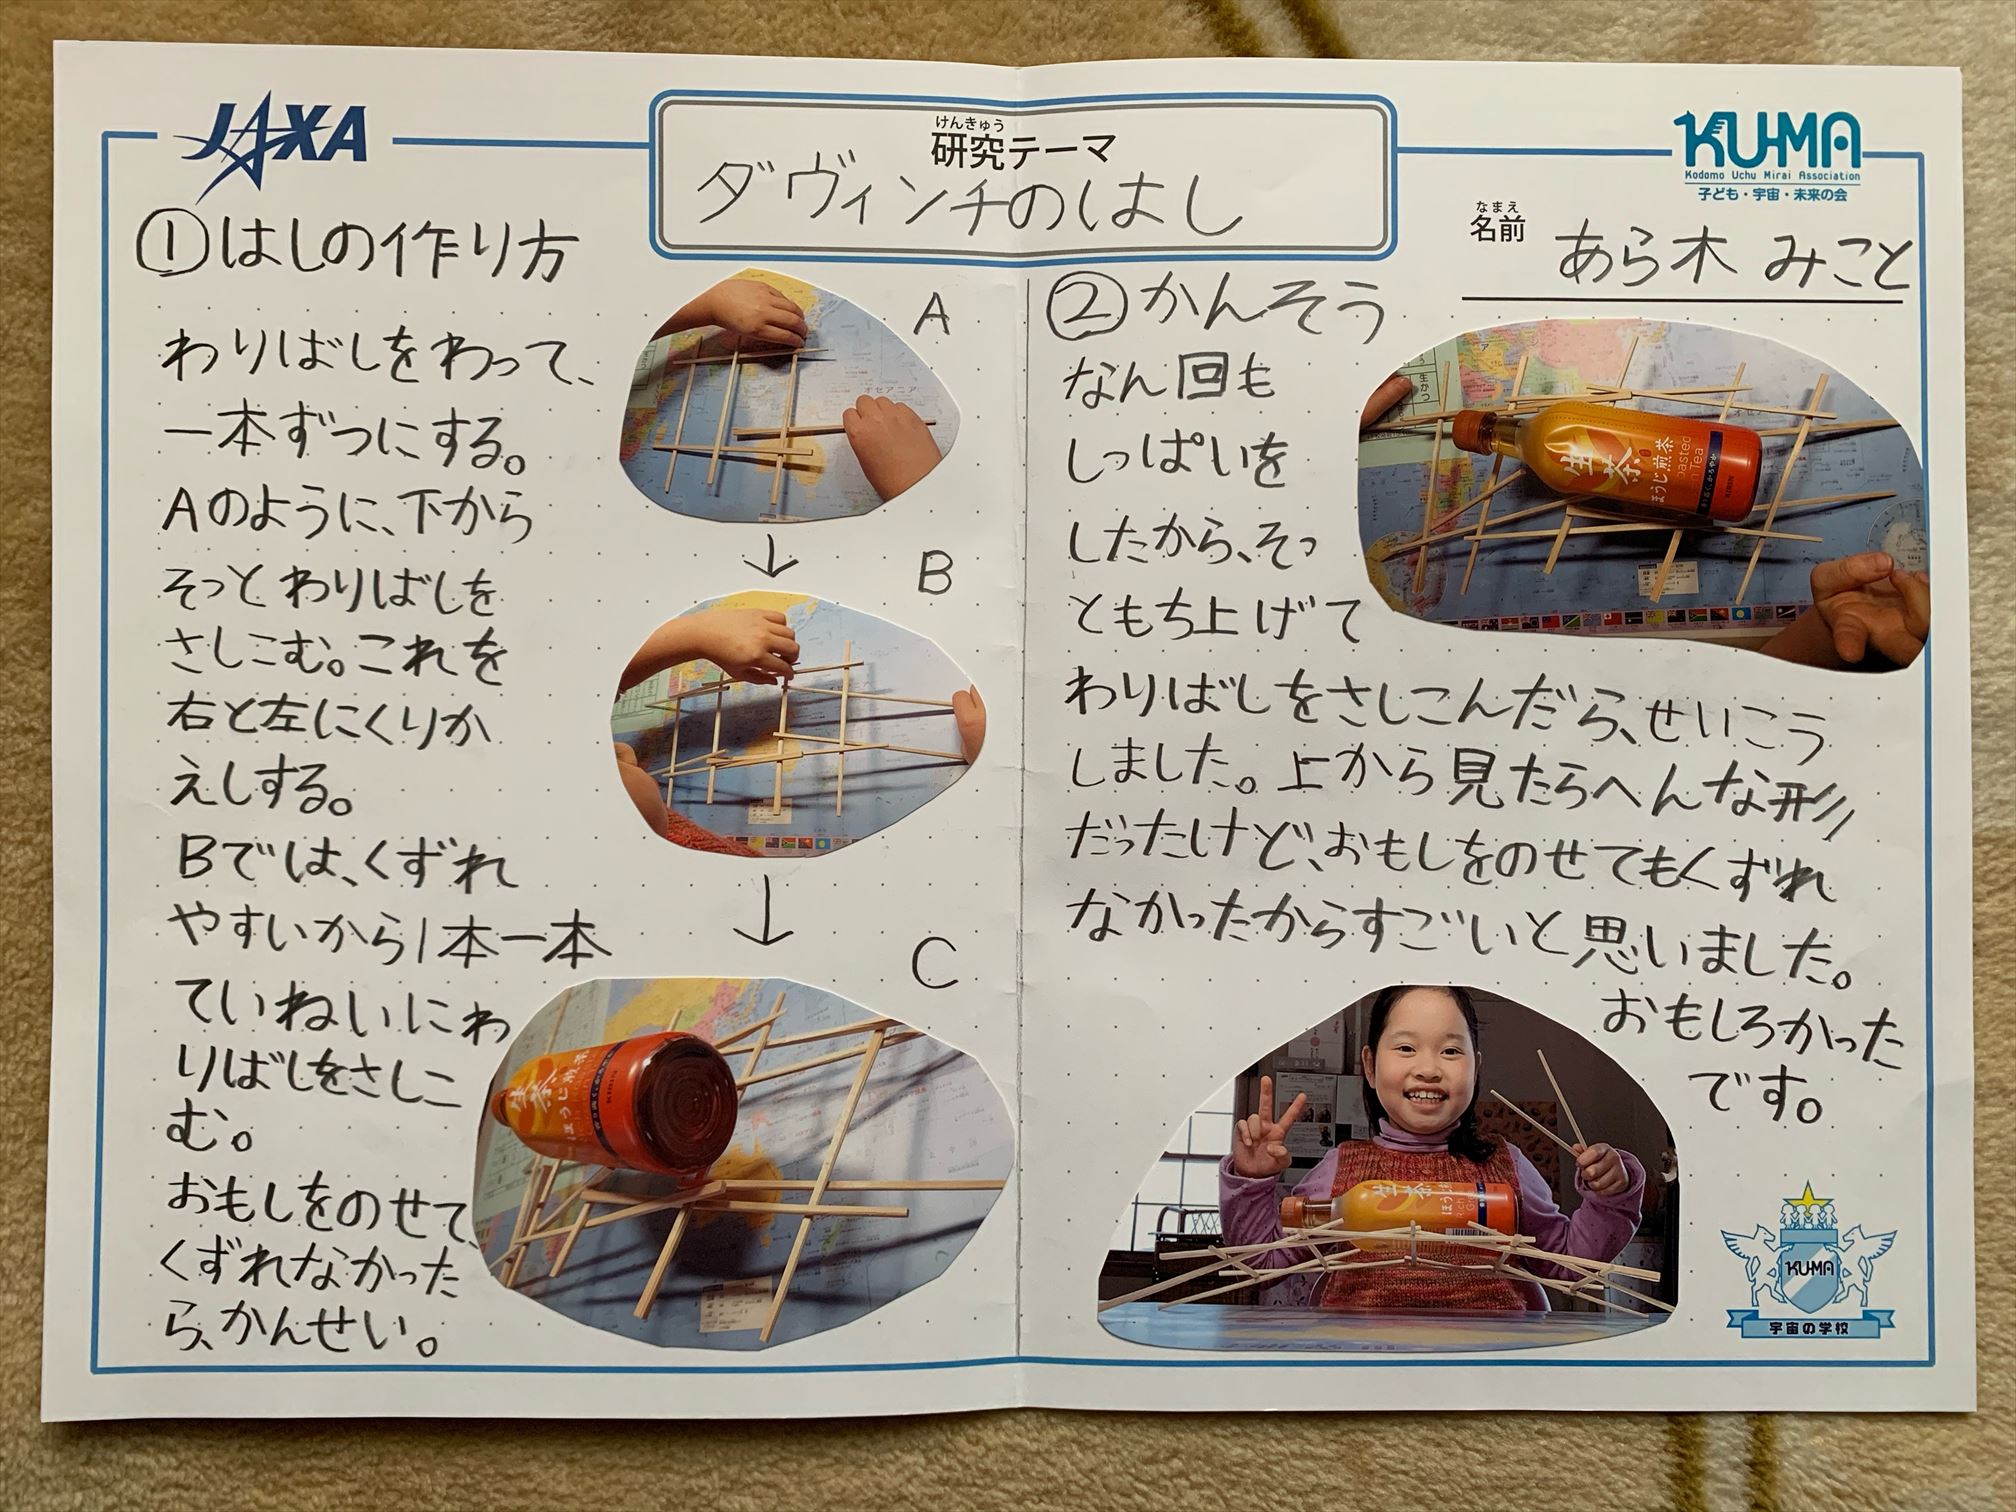 JAXA
けんきゅう
研究テーマ
ダヴィンチのはし
KU-MA
Kodomo Uchu Mirai Association
子ども・宇宙・未来の会
なまえ
名前
あら木 みこと
①はしの作り方
わりばしをわって、
一本ずつにする。
Aのように、下から
そっとわりばしを
さしこむ。これを
右と左にくりか
えしする。
Bでは、くずれ
やすいから1本一本
ていねいにわ
りばしをさしこ
む。
おもしをのせて、
くずれなかった
ら、かんせい。
A
オセアニア
↓
B
↓
C
生茶
ほうじ煎茶
KIRIN
②かんそう
なん回も
しっぱいを
したから、そっ
ともち上げて
わりばしをさしこんだら、せいこう
しました。上から見たらへんな形
だったけど、おもしをのせてもくずれ
なかったからすごいと思いました。
おもしろかった
です。
生茶
ほうじ煎茶
KIRIN
生茶
ほうじ
KU-MA
宇宙の学校